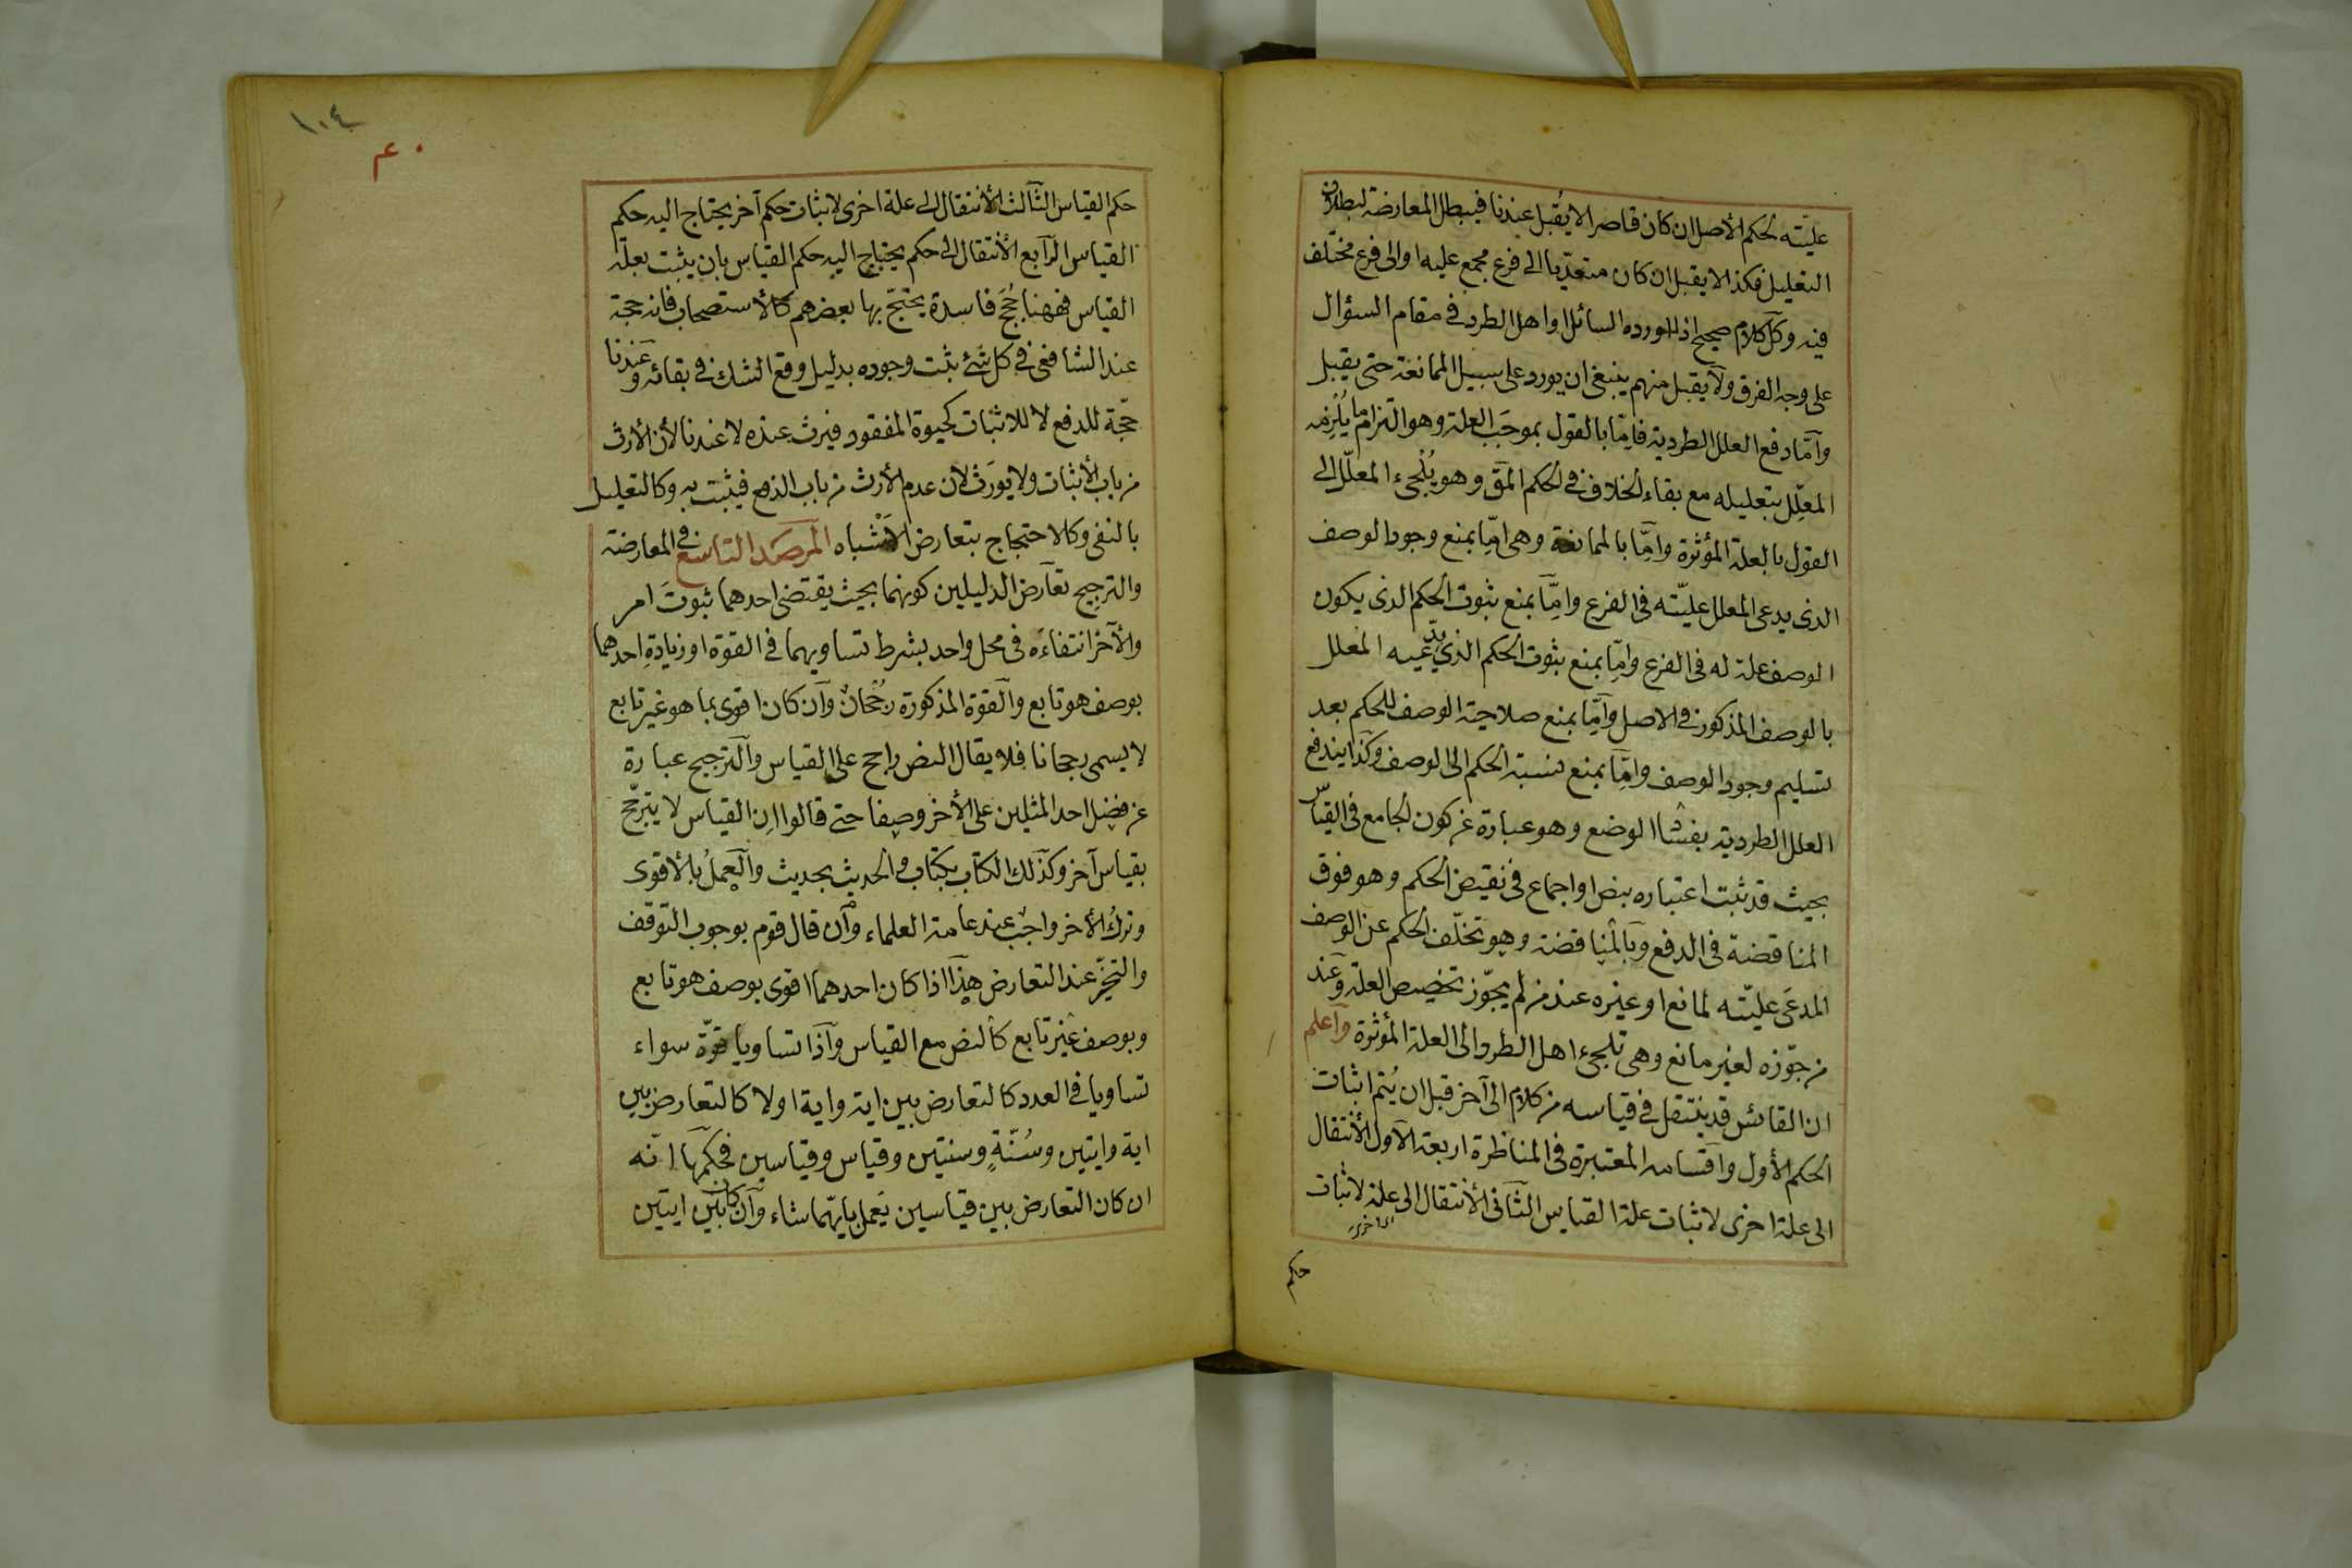 عليّته لحكم الأصل ان كان قاصرا لا يُقبل عندنا فيبطل المعارضة لبطلان
التعليل فكذا لا يقبل ان كان متعدّيا الى فرع مجمع عليه او الى فرع مختلف
فيه وكلّ كلام صحيح اذا اورده السائل او اهل الطرد في مقام السؤال
على وجه الفرق ولا يقبل منهم ينبغى ان يورد على سبيل الممانعة حتى يقبل
وآمّا دفع العلل الطردية فامّا بالقول بموجَب العلة وهو التزام ما يُلْزِمه
المعلِّل بتعليله مع بقاء الخلاف في الحكم المق وهو يُلْجىء المعلّل الى
القول بالعلة المؤثرة وامّا بالممانعة وهى امّا بمنع وجود الوصف
الذى يدعى المعلل عليّته فى الفرع وامّا بمنع ثبوت الحكم الذى يكون
الوصف علة له فى الفرع وامّا بمنع ثبوت الحكم الذي يدّعيه المعلل
بالوصف المذكور في الاصل وآمّا بمنع صلاحية الوصف للحكم بعد
تسليم وجود الوصف وامّا بمنع نسبة الحكم الى الوصف وكذا يندفع
العلل الطردية بفساد الوضع وهو عبارة عن كون الجامع فى القياس
بحيث قد ثبت اعتباره بنص او اجماع فى نقيض الحكم وهو فوق
المناقضة فى الدفع وبالمناقضة وهو تخلّف الحكم عن الوصف
المدعَى عليّته لمانع او غيره عند من لم يجوّز تخصيص العلة وعند
من جوّزه لغير مانع وهى تلجىء اهل الطرد الى العلة المؤثرة وآعلم
ان القائس قد ينتقل في قياسه من كلام الى آخر قبل ان يُتم اثبات
الحكم الأول وآقسامه المعتبرة فى المناظرة اربعة الآول الأنتقال
الى علة اخرى لاثبات علة القياس الثآنى الأنتقال الى علة لاثبات
اى اخرى
حكم
١٠٤
حكم القياس الثآلث الأنتقال الى علة اخرى لاثبات حكم آخر يحتاج اليه حكم
القياس الرآبع الأنتقال الى حكم يحتاج اليه حكم القياس بان يثبت بعلة
القياس فههنا حُجَج فاسدة يحتجّ بها بعضهم كالأستصحاب فانه حجة
عند الشافعى في كل شئ ثبت وجوده بدليل وقع الشك في بقائه وعندنا
حجّة للدفع لا للاثبات كحيوة المفقود فيرث عنده لا عندنا لأن الأرث
من باب الأثبات ولا يورَث لان عدم الأرث من باب الدفع فيثبت به وكالتعليل
بالنفى وكالاحتجاج بتعارض الأشباه المرصد التاسع في المعارضة
والترجيح تعآرض الدليلين كونهما بحيث يقتضى احدهما ثبوتَ امر
والآخر انتفاءَه فى محل واحد بشرط تساويهما فى القوة او زيادةِ احدهما
بوصف هو تابع وآلقوة المذكورة رُجْحانٌ وآن كان اقوى بما هو غير تابع
لا يسمى رجحانا فلا يقال النص راجح على القياس وآلترجيح عبارة
عن فضل احد المثلين على الأخر وصفا حتى قالوا ان القياس لا يترجّح
بقياس آخر وكذلك الكتاب بكتاب والحديث بحديث وآلعملُ بالأقوى
وتركُ الأخر واجبٌ عند عامة العلماء وآن قال قوم بوجوب التوقف
والتخيّر عند التعارض هذآ اذا كان احدهما اقوى بوصف هو تابع
وبوصف غير تابع كالنص مع القياس وآذا تساويا قوّة سواء
تساويا في العدد كالتعارض بين اية واية اولا كالتعارض بين
اية وايتين وسُنّةٍ وسنتين وقياس وقياسين فحكمها انّه
ان كان التعارض بين قياسين يَعمل بايّهما شاء وآن كان بين ايتين